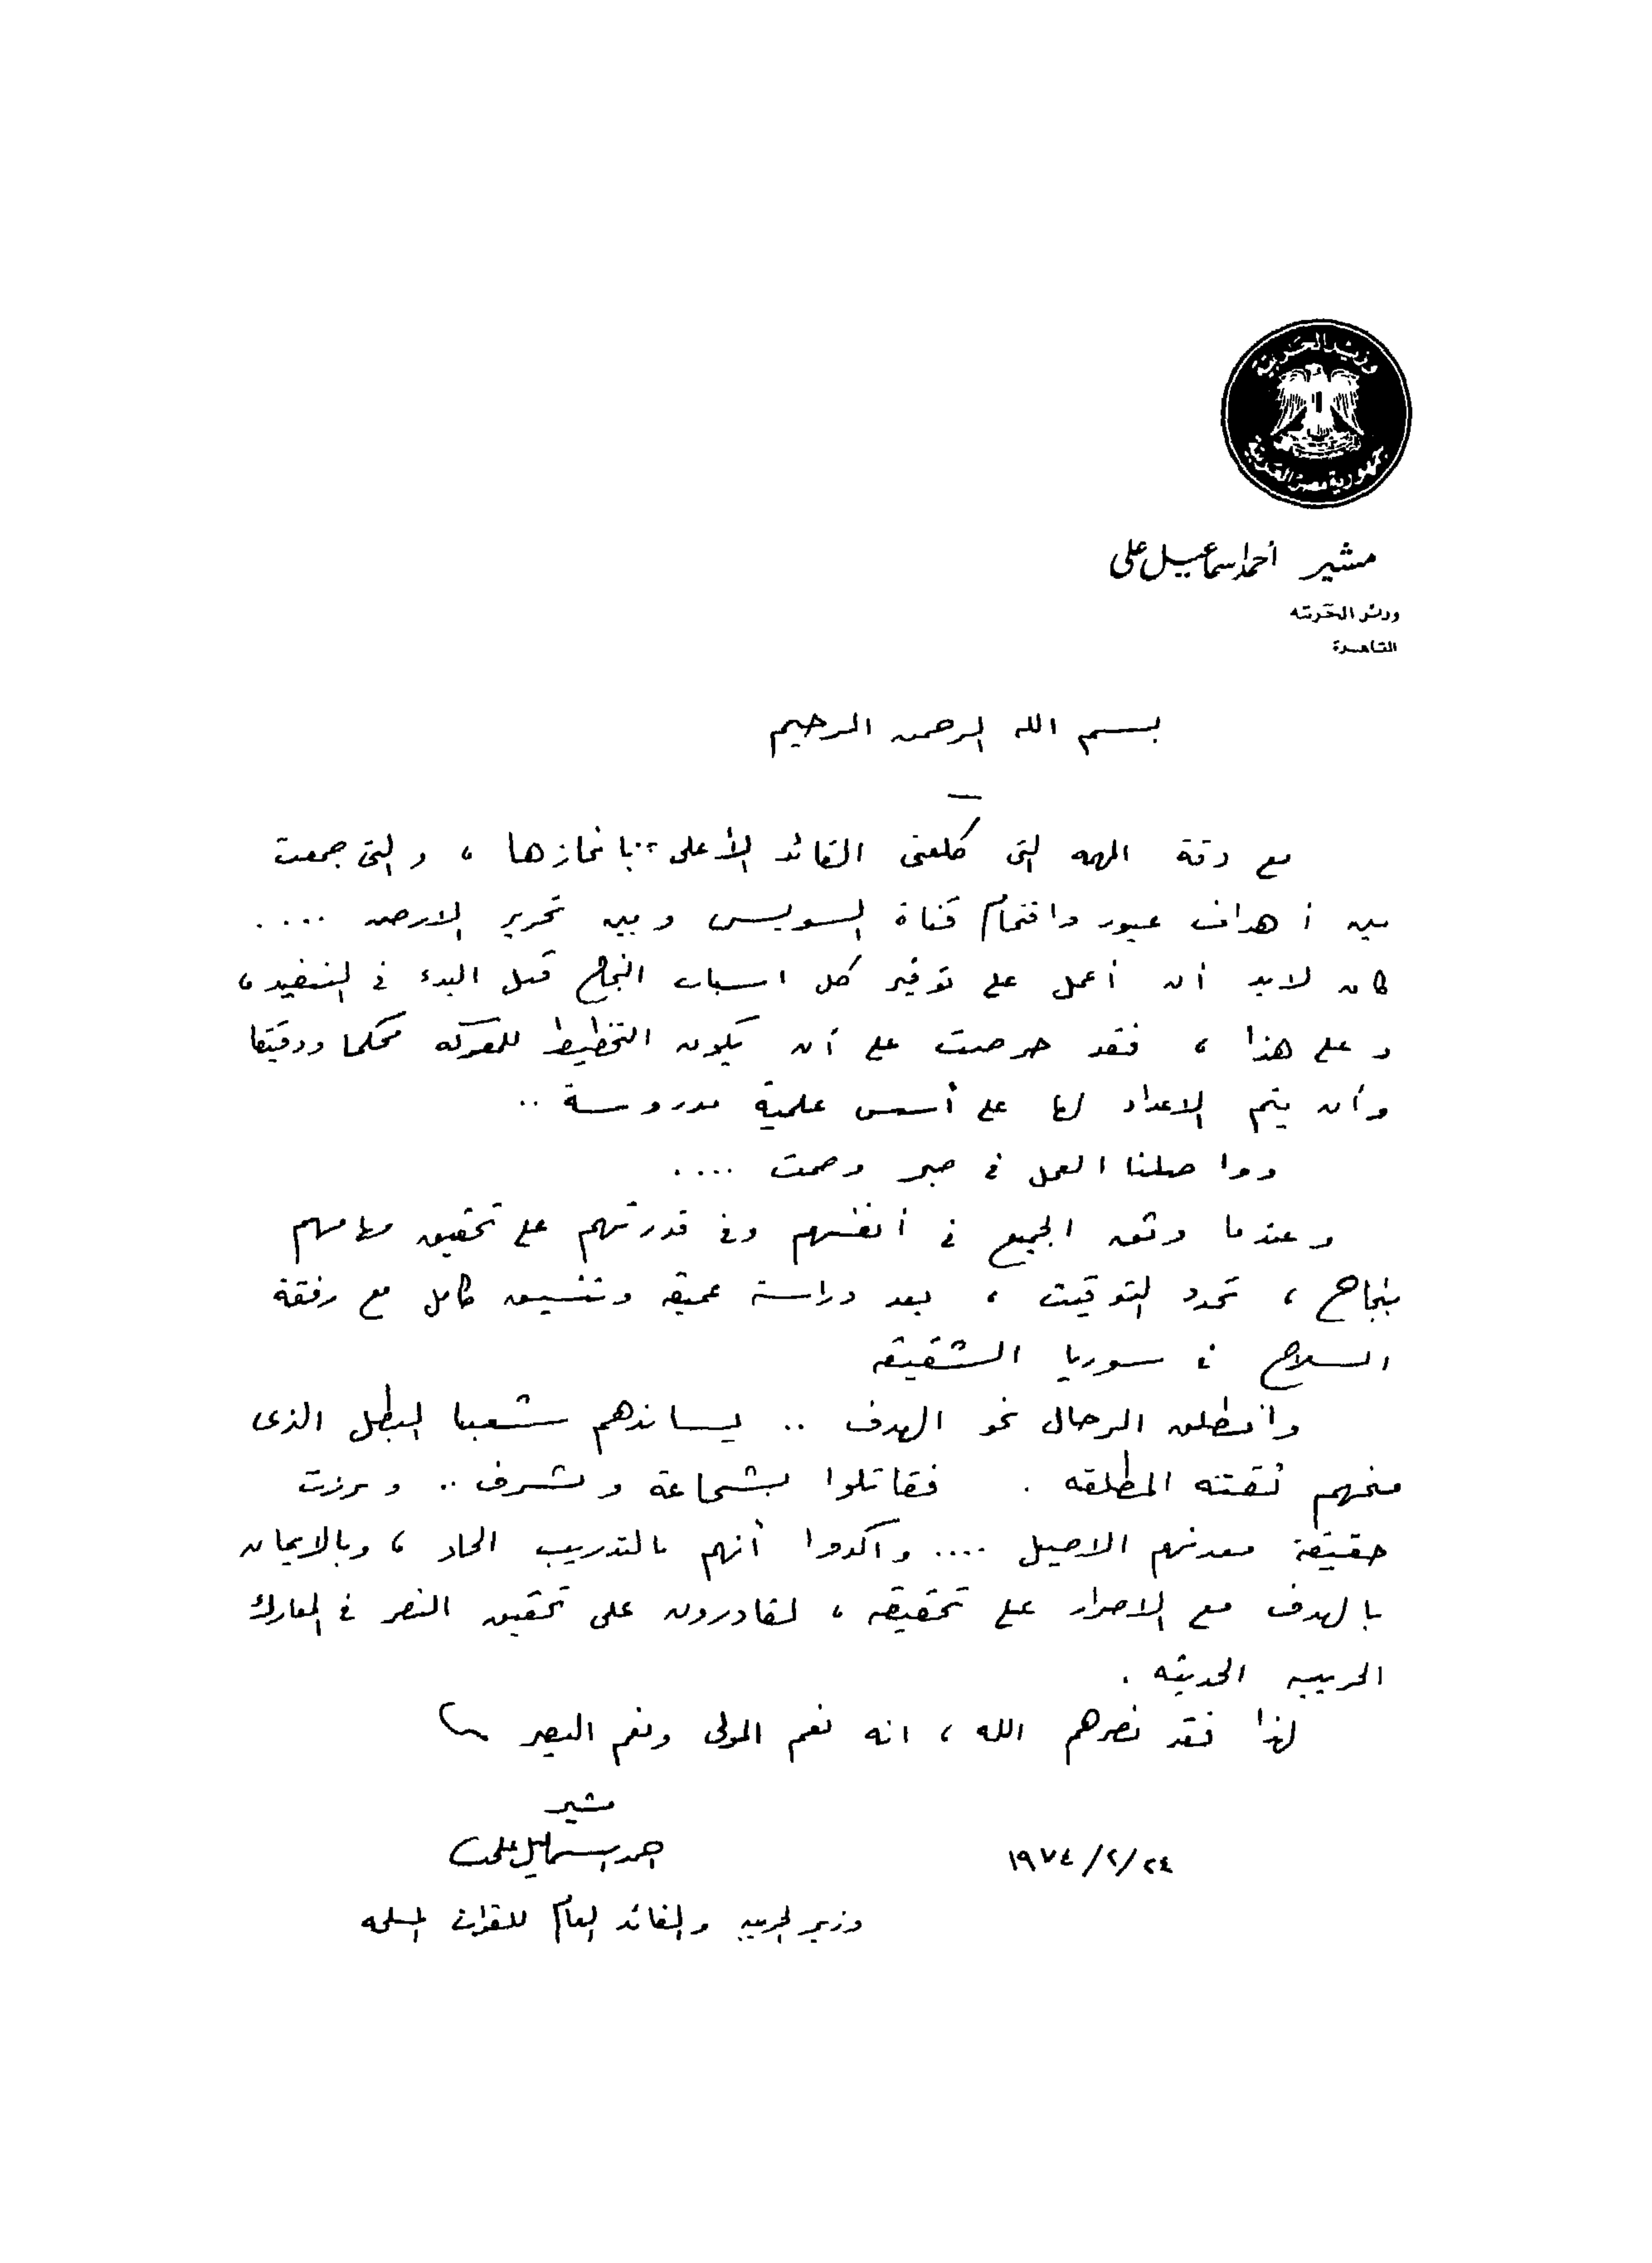 وزير الحربية
جمهورية مصر العربية
مشير أحمد اسماعيل على
وزير الحربية
القاهرة
بسم الله الرحمن الرحيم
مع دقة المهمه التى كلفنى القائد الأعلى بانجازها ، والتى جمعت
بين أهداف عبور واقتحام قناة السويس وبين تحرير الارض ....
كان لابد أن أعمل على توفير كل اسباب النجاح قبل البدء فى التنفيذ ،
وعلى هذا ، فقد حرصت على أن يكون التخطيط للمعركه محكما ودقيقا
وأن يتم الاعداد لها على أسس علمية مدروسة ..
وواصلنا العمل فى صبر وصمت ....
وعندما وثق الجميع فى أنفسهم وفى قدرتهم على تحقيق مهامهم
بنجاح ، تحدد التوقيت ، بعد دراسة عميقه وتنسيق كامل مع رفقة
السلاح فى سوريا الشقيقه
وانطلق الرجال نحو الهدف .. يساندهم شعبنا البطل الذى
منحهم ثقته المطلقه . فقاتلوا بشجاعة وشرف .. وبرزت
حقيقة معدنهم الاصيل .... وأكدوا أنهم بالتدريب الجاد ، وبالايمان
بالهدف مع الاصرار على تحقيقه ، لقادرون على تحقيق النصر فى المعارك
الحربيه الحديثه .
لهذا فقد نصرهم الله ، انه نعم المولى ونعم النصير
مشير
احمد اسماعيل على
١٩٧٤/٢/٢٤
وزير الحربيه والقائد العام للقوات المسلحه